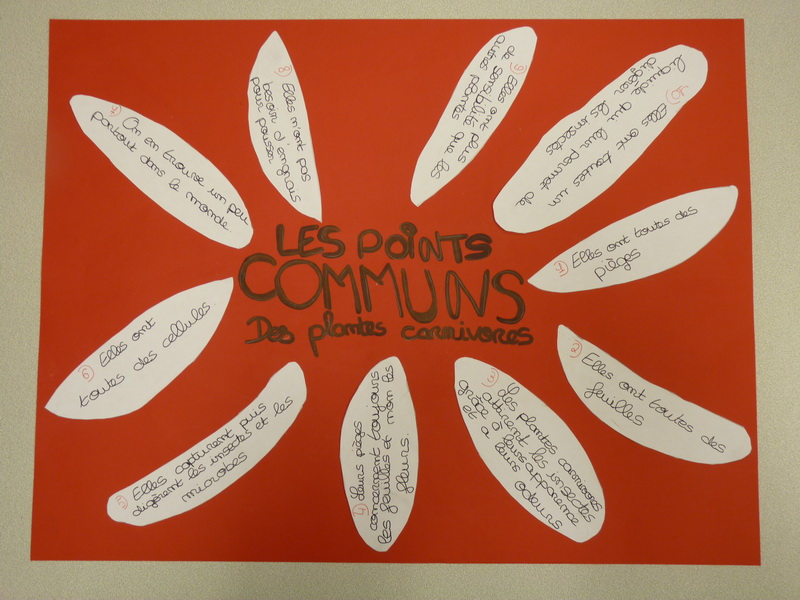 LES POINTS
COMMUNS
Des plantes carnivores
① Elles ont toutes des
pièges
② Elles ont toutes des
feuilles
③ Les plantes carnivores
attirent les insectes
grâce à leurs apparence
et a leurs odeurs
④ Leurs pièges
concernent toujours
les feuilles et non les
fleurs.
⑤ Elles capturent puis
digèrent les insectes et les
microbes
⑥ Elles ont
toutes des cellules
On en trouve un peu
partout dans le monde.
⑧ Elles n'ont pas
besoin d'engrais
pour pousser
⑨ Elles ont plus
de sensibilité que les
autres plantes
⑩ Elles ont toutes un
liquide qui leur permet de
digérer les insectes